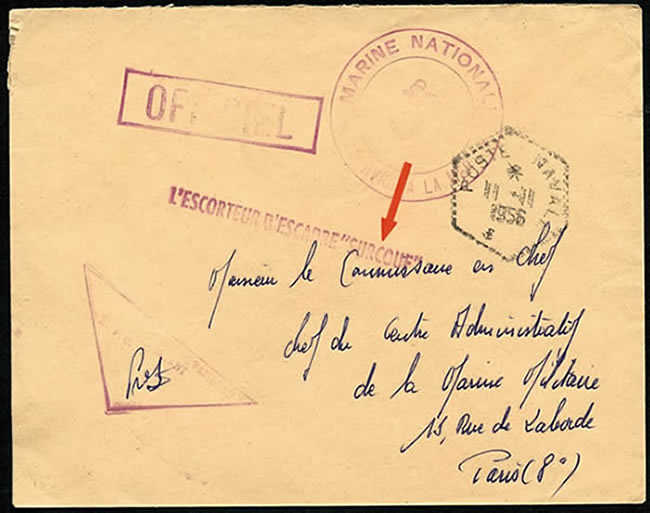 MARINE NATIONALE
OFFICIEL
A LA MER
POSTE NAVALE
*
11 - 11
1956
*
L'ESCORTEUR D'ESCADRE "SURCOUF"
Monsieur le Commissaire en chef
chef du Centre Administratif
de la Marine Militaire
13, Rue de Laborde
Paris (8e)